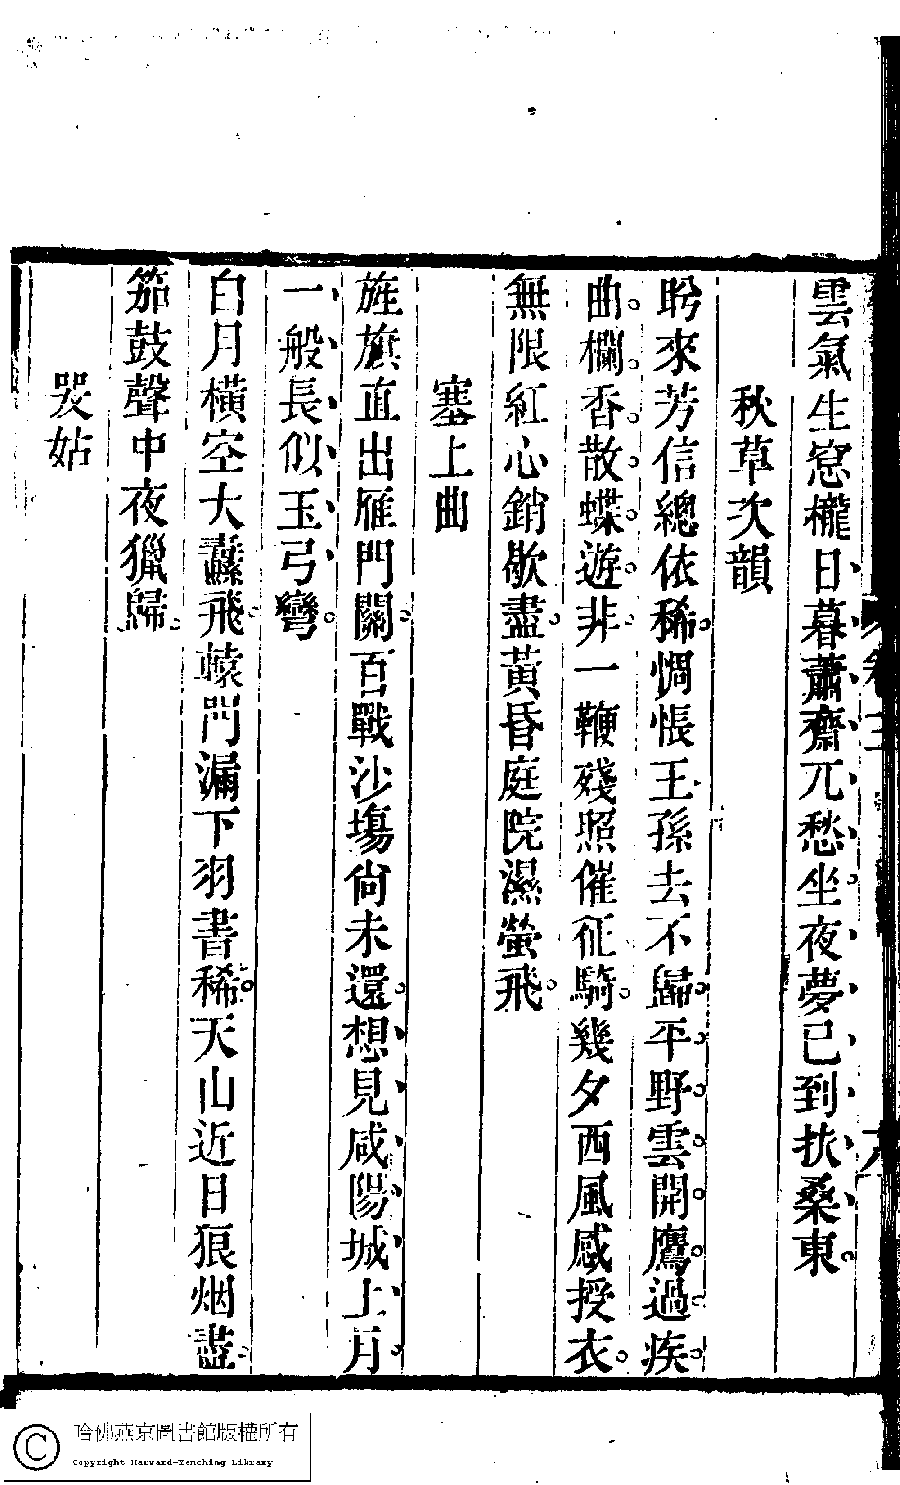 雲氣生窓櫳日暮蕭齋兀愁坐夜夢已到扶桑東
秋草次韻
盻來芳信總依稀惆悵王孫去不歸平野雲開鷹過疾
曲欄香散蝶遊非一鞭殘照催征騎幾夕西風感授衣
無限紅心銷歇盡黃昏庭院濕螢飛
塞上曲
旌旗直出雁門關百戰沙塲尙未還想見咸陽城上月
一般長似玉弓彎
白月橫空大纛飛轅門漏下羽書稀天山近日狼烟盡
笳鼓聲中夜獵歸
哭姑
哈佛燕京圖書館版權所有
Copyright Harvard-Yenching Library